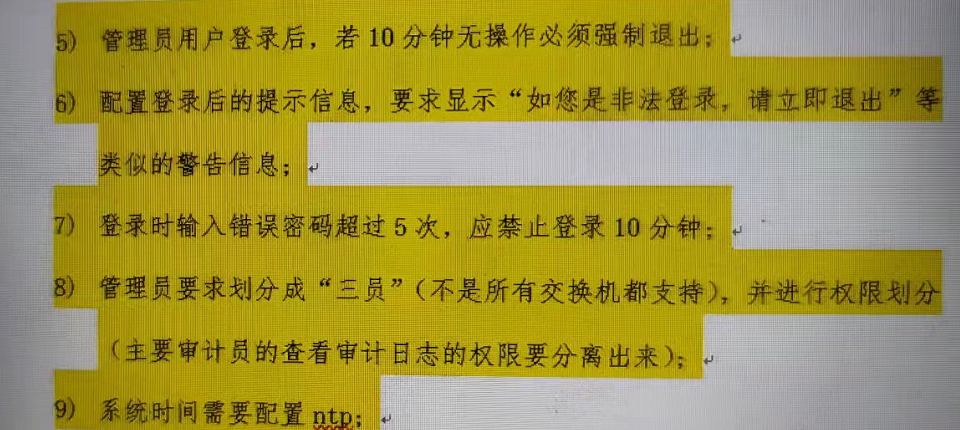 5) 管理员用户登录后，若 10 分钟无操作必须强制退出；
6) 配置登录后的提示信息，要求显示“如您是非法登录，请立即退出”等
类似的警告信息；
7) 登录时输入错误密码超过 5 次，应禁止登录 10 分钟；
8) 管理员要求划分成“三员”（不是所有交换机都支持），并进行权限划分
（主要审计员的查看审计日志的权限要分离出来）；
9) 系统时间需要配置 ntp；